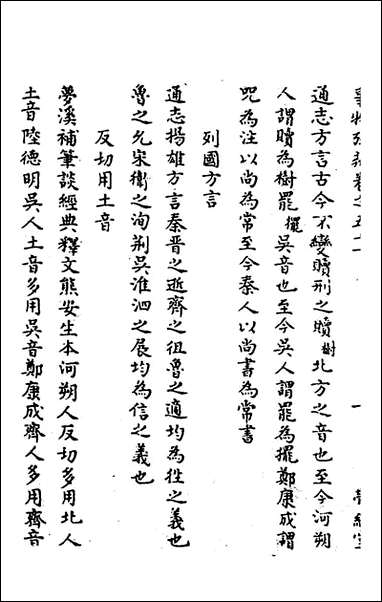 通志方言古今不變贖刑之贖樹北方之音也至今河朔
人謂贖為樹罷擺吴音也至今吴人謂罷為擺鄭康成謂
咒為注以尚為常至今秦人以尚書為常書
列國方言
通志揚雄方言秦晋之逝齊之徂魯之適均為徃之義也
魯之允宋衞之洵荆吴淮泗之展均為信之義也
反切用土音
夢溪補筆談經典釋文熊安生本河朔人反切多用北人
土音陸德明吴人土音多用吴音鄭康成齊人多用齊音